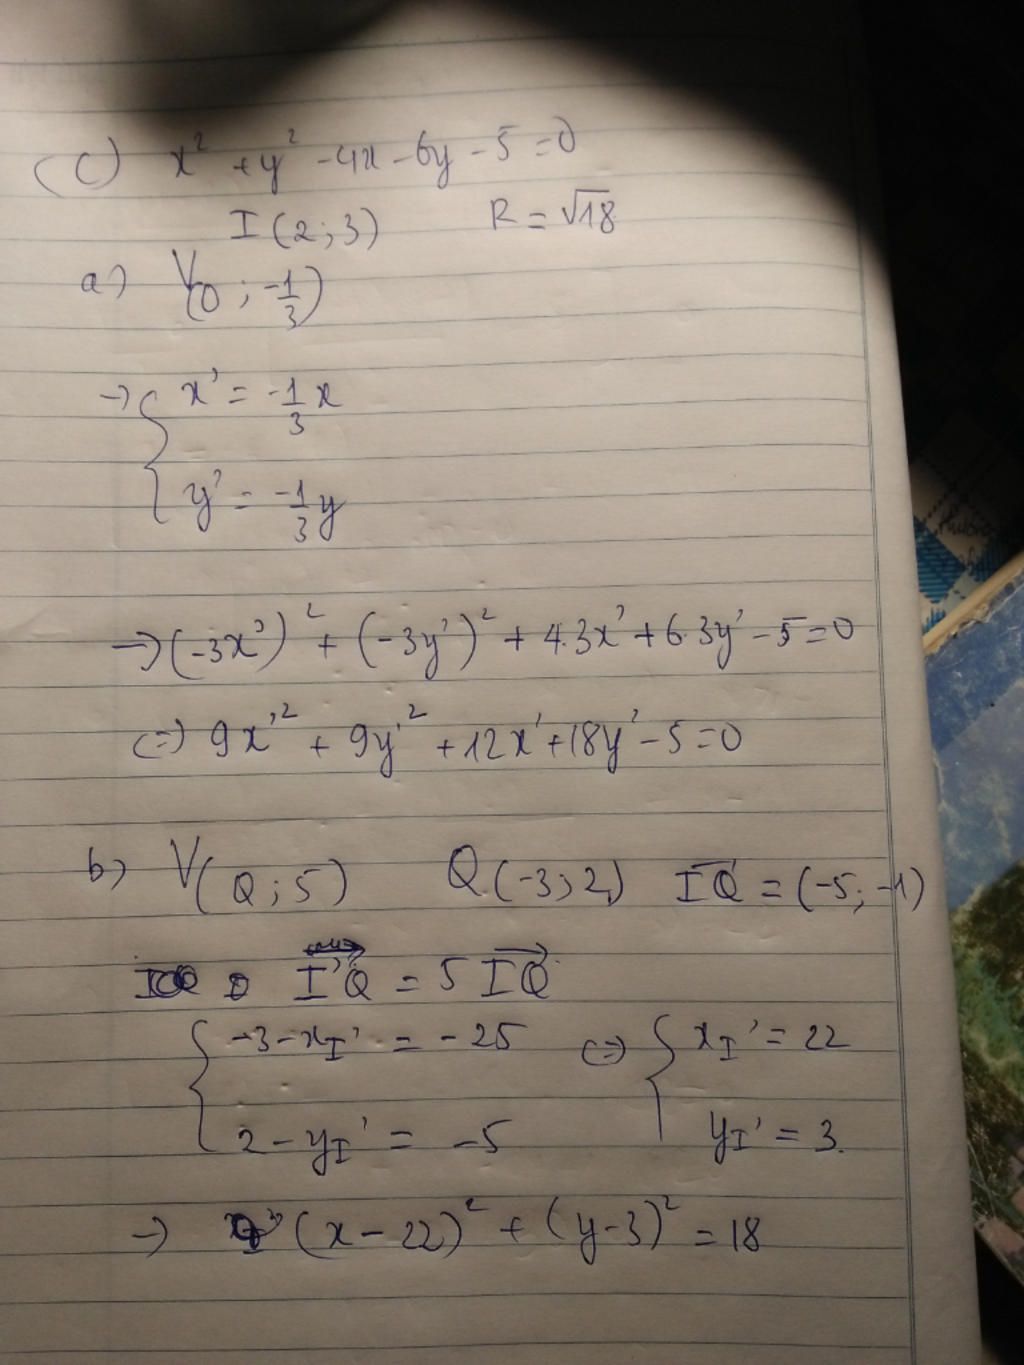 (C) x² + y² - 4x - 6y - 5 = 0
I (2; 3) R = √18
a) V(O; -1/3)
→ { x' = -1/3 x
y' = -1/3 y
→ (-3x')² + (-3y')² + 4.3x' + 6.3y' - 5 = 0
(=) 9x'² + 9y'² + 12x' + 18y' - 5 = 0
b) V(Q; 5) Q (-3; 2) IQ = (-5; -1)
I'Q = 5 IQ
{ -3 - xI' = -25 (=) { xI' = 22
2 - yI' = -5 yI' = 3.
→ (x - 22)² + (y - 3)² = 18